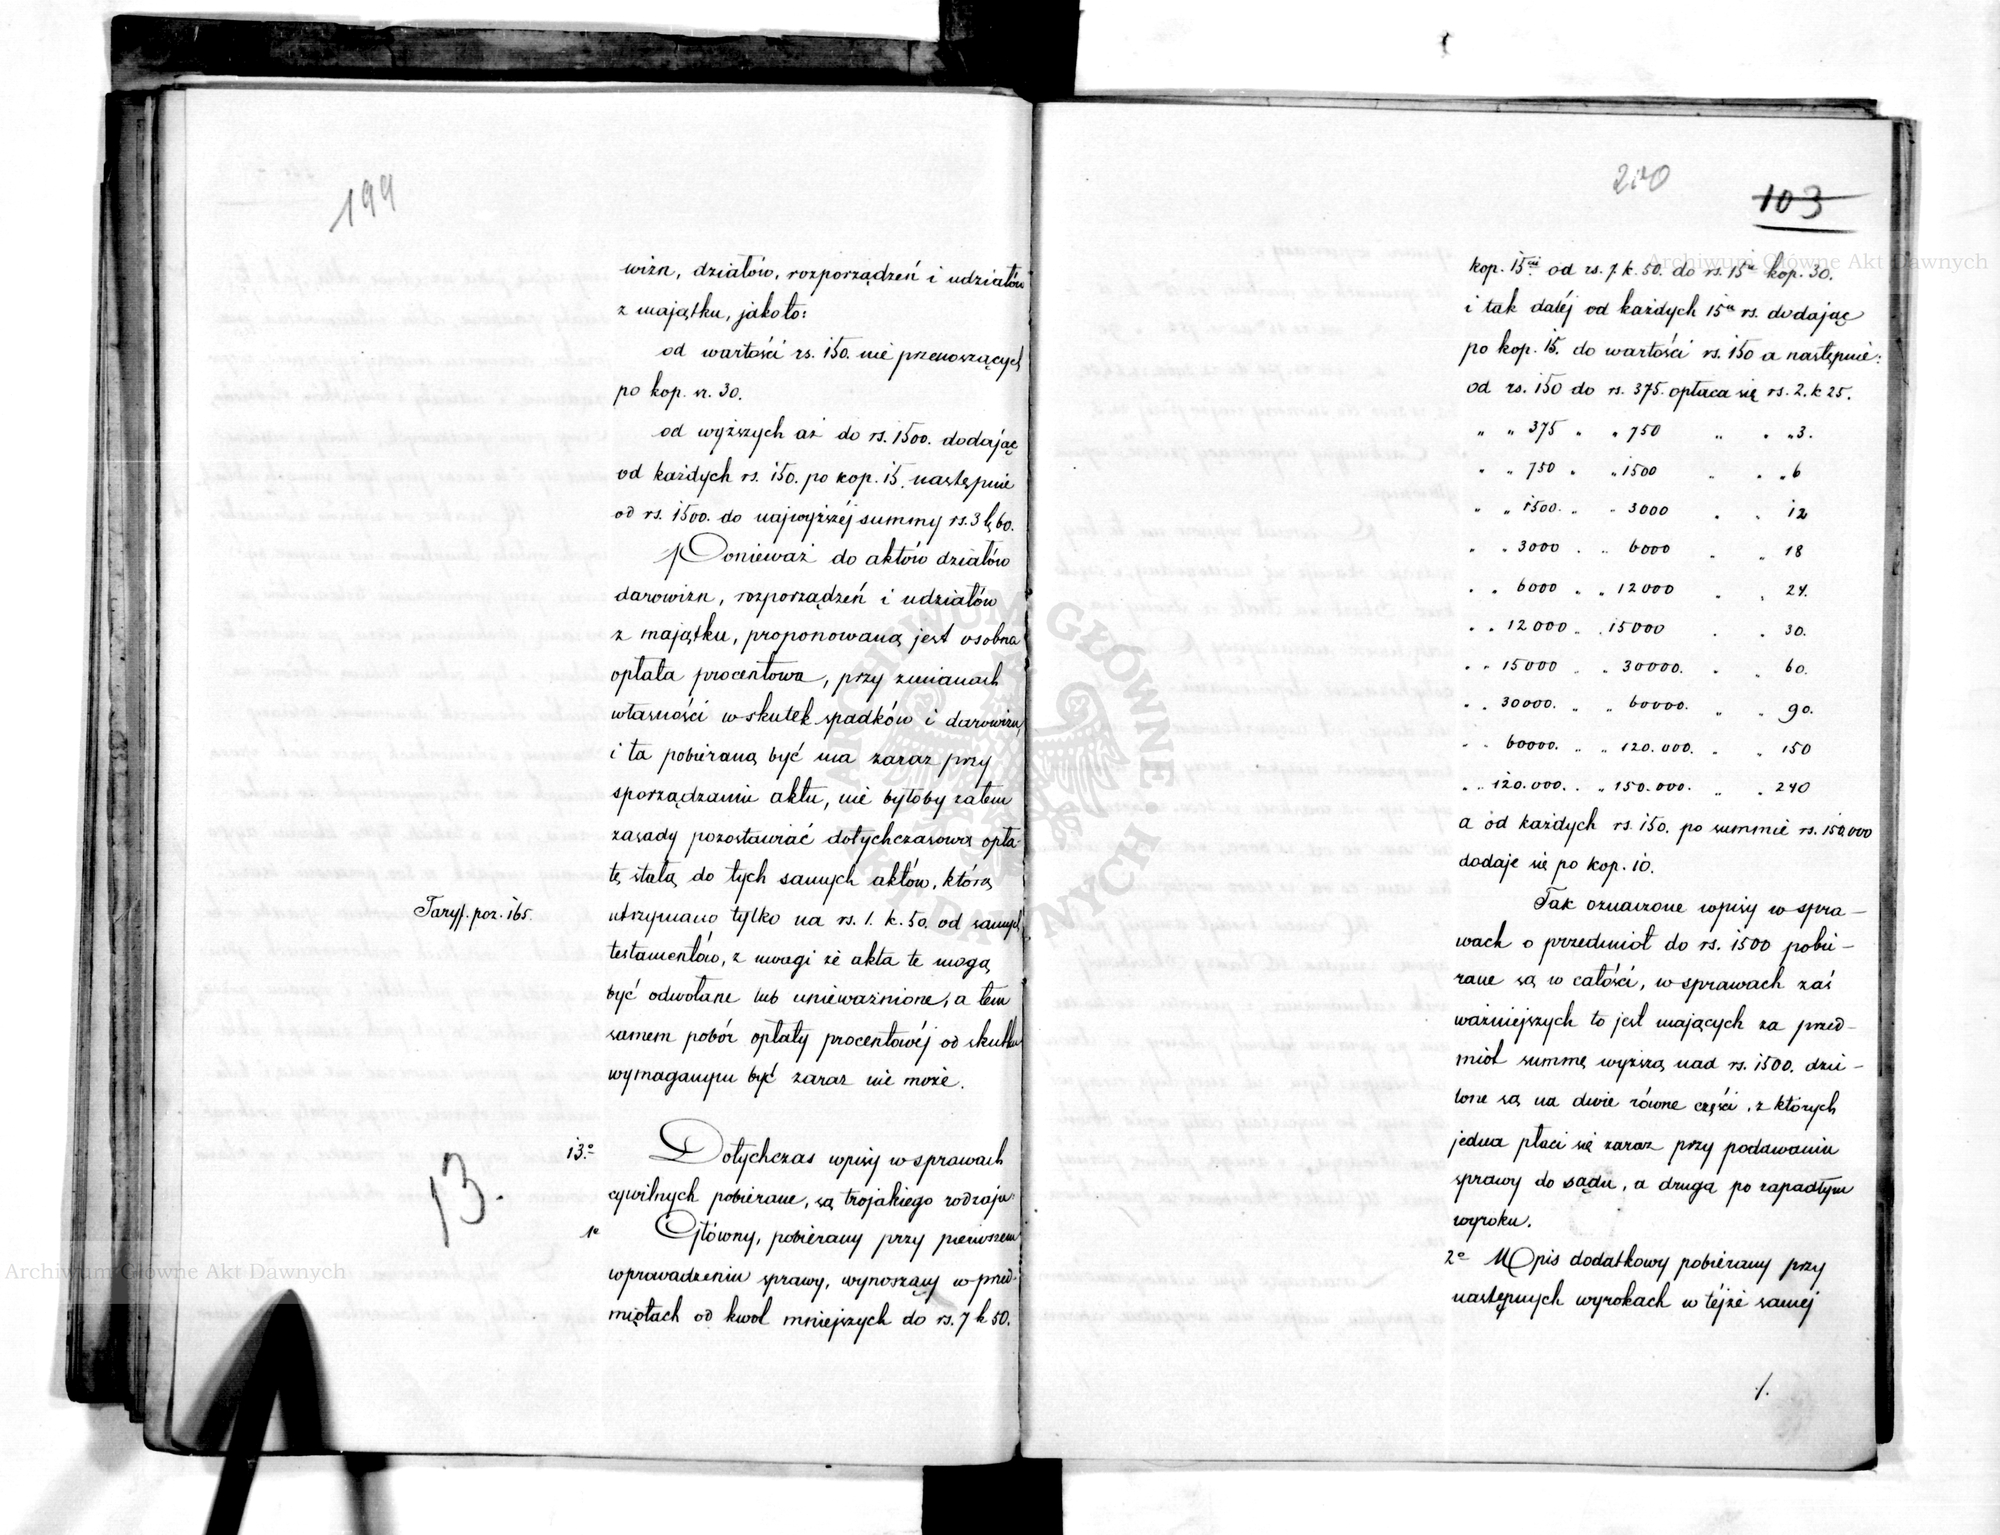 199
wizn, działów, rozporządzeń i udziałów
z majątku, jakoto:
od wartości rs. 150. nie przenoszących
po kop. sr. 30.
od wyższych aż do rs. 1500. dodając
od każdych rs. 150. po kop. 15. następnie
od rs. 1500. do najwyższéj summy rs. 3 k 60.
Ponieważ do aktów działów
darowizn, rozporządzeń i udziałów
z majątku, proponowaną jest osobna
opłata procentowa, przy zmianach
własności w skutek spadków i darowizn,
i ta pobieraną być ma zaraz przy
sporządzaniu aktu, nie byłoby zatem
zasady pozostawiać dotychczasową opła-
tę stałą do tych samych aktów, którą
Taryf. poz. 165.
utrzymano tylko na rs. 1. k. 50. od samych
testamentów, z uwagi że akta te mogą
być odwołane lub unieważnione, a tem
samem pobór opłaty procentowéj od skutku
wymaganym być zaraz nie może.
13.
13.° Dotychczas wpisy w sprawach
cywilnych pobiérane, są trojakiego rodzaju:
1e Główny, pobiérany przy pierwszem
wprowadzeniu sprawy, wynoszący w przed-
miotach od kwot mniejszych do rs. 7 k 50.
200
103
kop. 15. od rs. 7. k. 50. do rs. 15 kop. 30.
i tak daléj od każdych 15 rs. dodając
po kop. 15. do wartości rs. 150 a następnie:
od rs. 150 do rs. 375. opłaca się rs. 2. k 25.
" " 375 " " 750 " " " 3.
" " 750 " " 1500 " " " 6
" " 1500. " " 3000 " " 12
" " 3000 " " 6000 " " 18
" " 6000 " " 12000 " " 24.
" " 12000 " " 15000 " " 30.
" " 15000 " " 30000. " " 60.
" " 30000. " " 60000. " " 90.
" " 60000. " " 120.000. " " 150
" " 120.000. " " 150.000. " " 240
a od każdych rs. 150. po summie rs. 150,000
dodaje się po kop. 10.
Tak oznaczone wpisy w spra-
wach o przedmiot do rs. 1500 pobié-
rane są w całości, w sprawach zaś
ważniejszych to jest mających za przed-
miot summę wyższą nad rs. 1500. dzie-
lone są na dwie równe części, z których
jedna płaci się zaraz przy podawaniu
sprawy do sądu, a druga po zapadłym
wyroku.
2e Wpis dodatkowy pobiérany przy
następnych wyrokach w téjże saméj
/.
Archiwum Główne Akt Dawnych
Archiwum Główne Akt Dawnych
ARCHIWUM GŁÓWNE AKT DAWNYCH